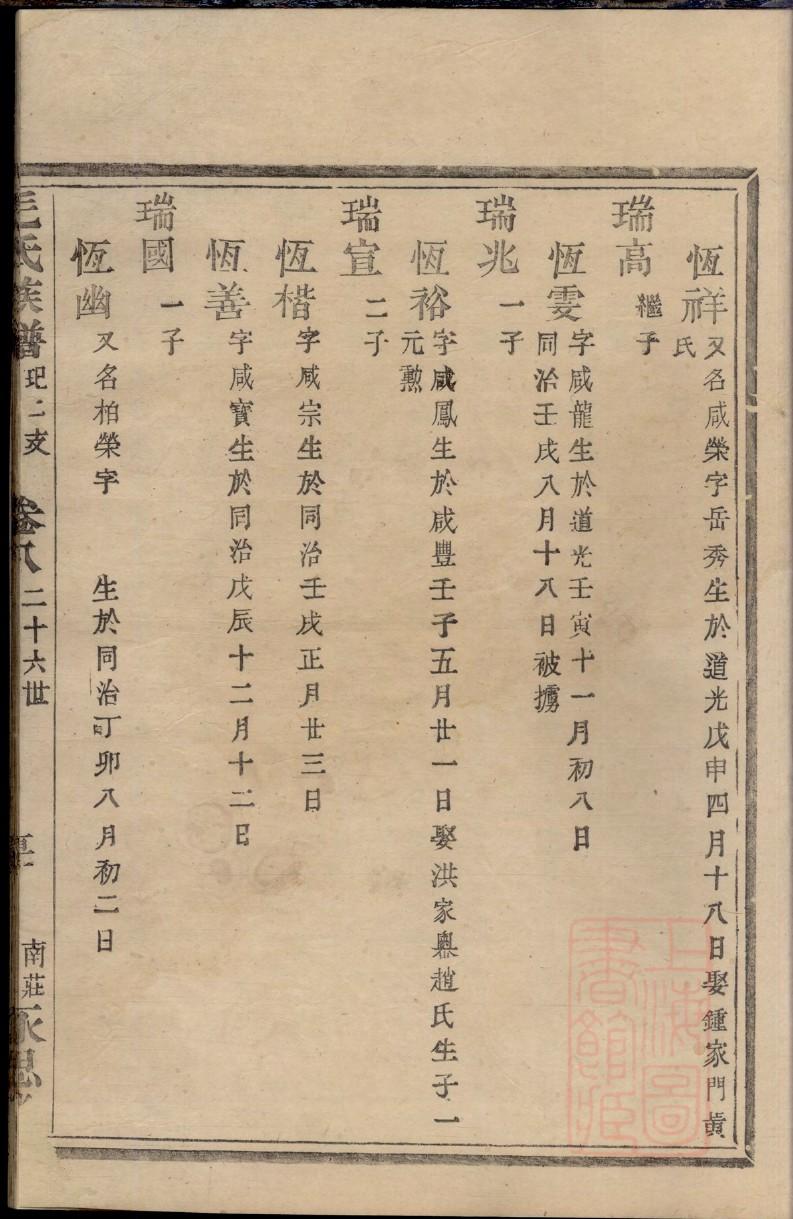 恆祥又名咸榮字岳秀生於道光戊申四月十八日娶鍾家門黃
氏
瑞高繼子
恆雯字咸龍生於道光壬寅十一月初八日
同治壬戌八月十八日被擄
瑞兆一子
恆裕字咸鳳生於咸豐壬子五月廿一日娶洪家奧趙氏生子一
元勲
瑞宣二子
恆楷字咸宗生於同治壬戌正月廿三日
恆善字咸寶生於同治戊辰十二月十二日
瑞國一子
恆幽又名柏榮字 生於同治丁卯八月初二日
毛氏族譜 玘二支 卷八 二十六世 南莊 永思
上海圖書館藏